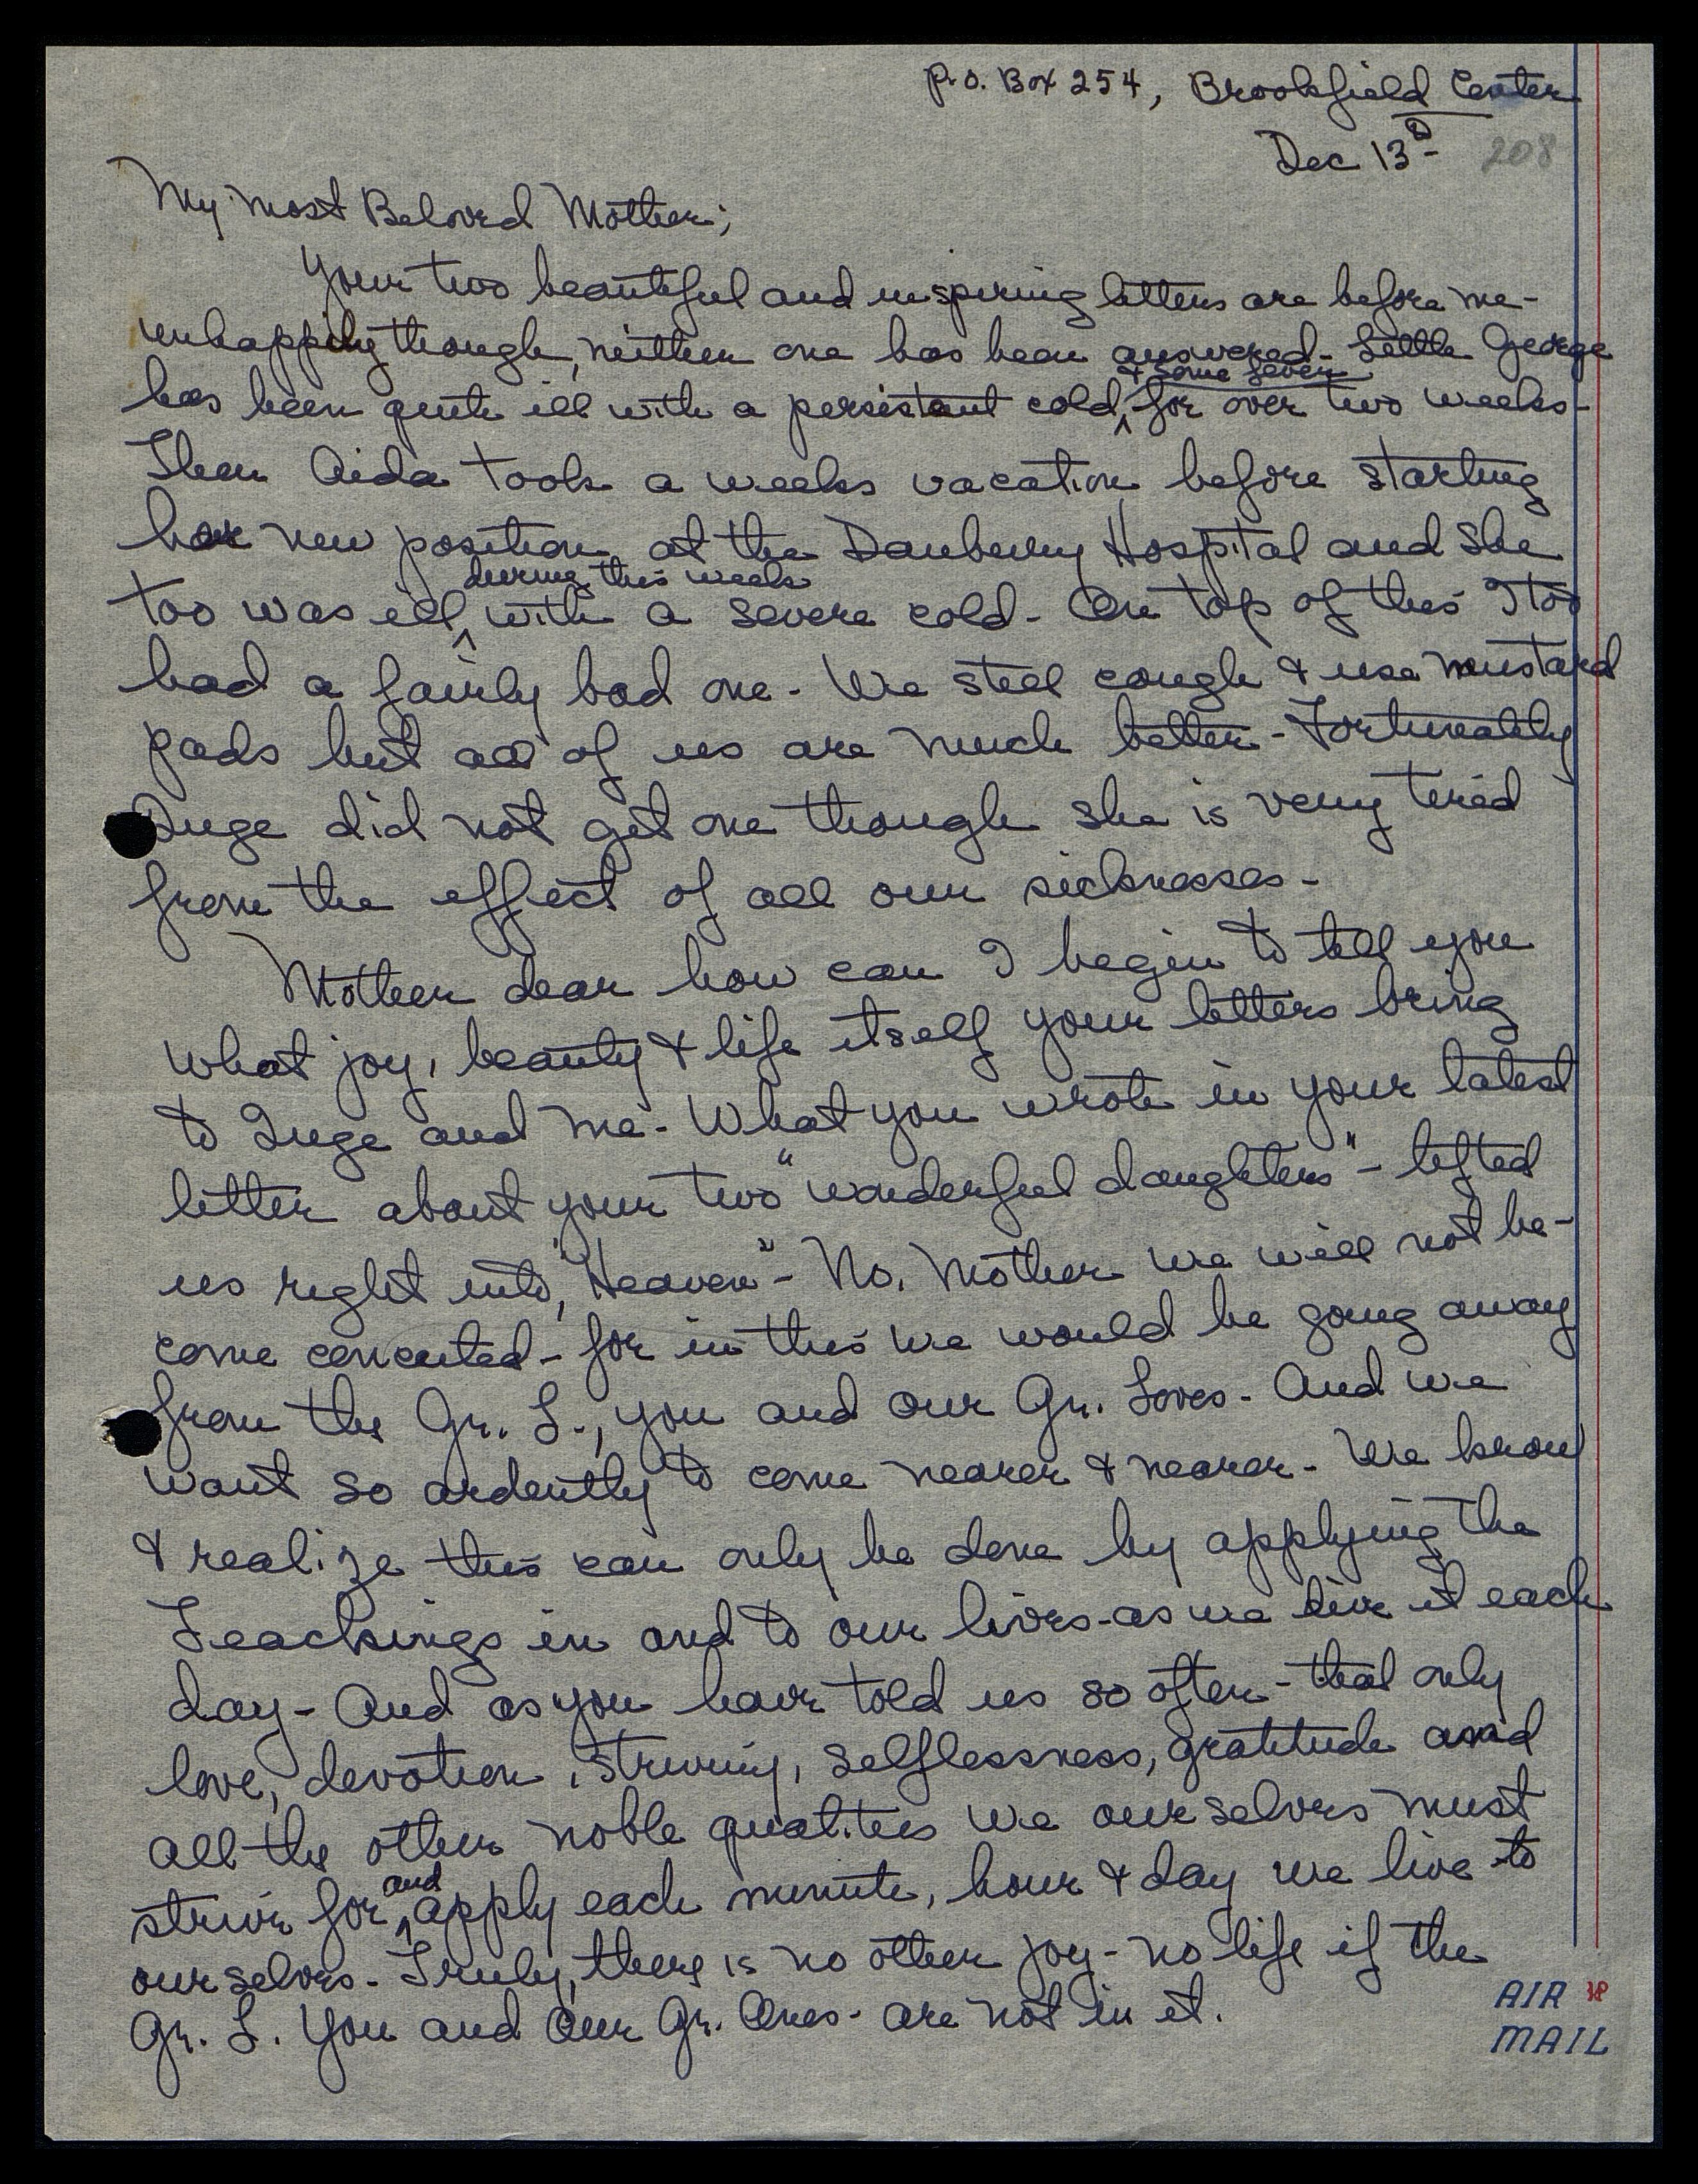 P.O. Box 254, Brookfield Center
Dec 13th 208
My most Beloved Mother;
Your two beautiful and inspiring letters are before me -
unhappily though, neither one has been answered - Little George
has been quite ill with a persistant cold, & some fever for over two weeks -
Then Aida took a weeks vacation before starting
her new position at the Danbury Hospital and she
too was ill during this week with a severe cold - On top of this I too
had a fairly bad one - We still cough & use mustard
pads but all of us are much better - Fortunately
Inge did not get one though she is very tired
from the effect of all our sicknesses -
Mother dear how can I begin to tell you
what joy, beauty & life itself your letters bring
to Inge and me - What you wrote in your latest
letter about your two "wonderful daughters" - lifted
us right into "Heaven" - No, Mother we will not be-
come conceited - for in this we would be going away
from the Gr. L., you and our Gr. Loves - And we
want so ardently to come nearer & nearer - We know
& realize this can only be done by applying the
Teachings in and to our lives - as we live it each
day - And as you have told us so often - that only
love, devotion, striving, selflessness, gratitude and
all the other noble qualities we ourselves must
strive for and apply each minute, hour & day we live to
ourselves - Truly, there is no other joy - no life if the
Gr. L. You and Our Gr. Ones - are not in it.
AIR
MAIL